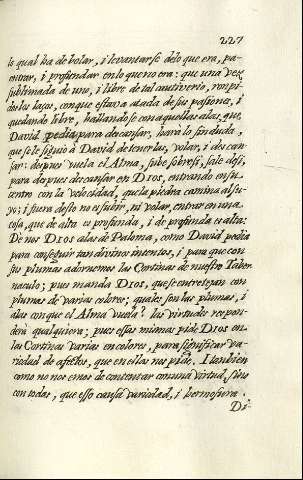 227
lo qual ha de bolar, i levantarse delo que era, pa-
entrar, i profundar enlo que no era: que una vez
sublimada de uno, i libre de tal cautiverio, rompi
dos los laços, conque estava atada de sus pasiones, i
quedando libre, hallandose con aquellas alas, que
David pedia para descansar, hara lo sin duda,
que se le siguió à David de tenerlas, volar, i descan-
sar: despues vuela el Alma, sube sobresi, sale desi,
para despues descansar en DIOS, entrando en su
centro con la velocidad, que la piedra camina al su-
yo; i fuera desto no es subir, ni volar, entrar en una
cosa, que de alta es profunda, i de profunda es alta.
De nos DIOS alas de Paloma, como David pedia
para conseguir tan divinos intentos, i para que con
sus plumas adornemos las Cortinas de nuestro Taber
naculo; pues manda DIOS, que se entretexan con
plumas de varias colores; quales son las plumas, i
alas con que el Alma vuela? las virtudes respon-
derà qualquiera; pues estas misma pide DIOS en
las Cortinas varias en colores, para significar va-
riedad de afectos, que en ellas nos pide. I tambien
como no nos emos de contentar con una virtud, sino
con todas, que esso causa variedad, i hermosura.
Di-